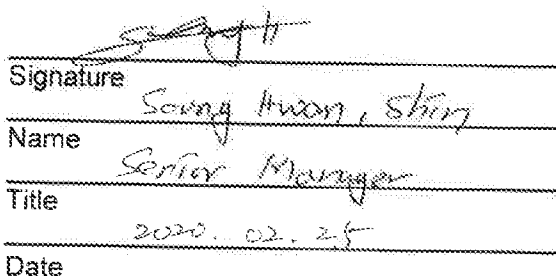 Signature
Soung Hwan, Shin
Name
Senior Manager
Title
2020. 02. 25
Date